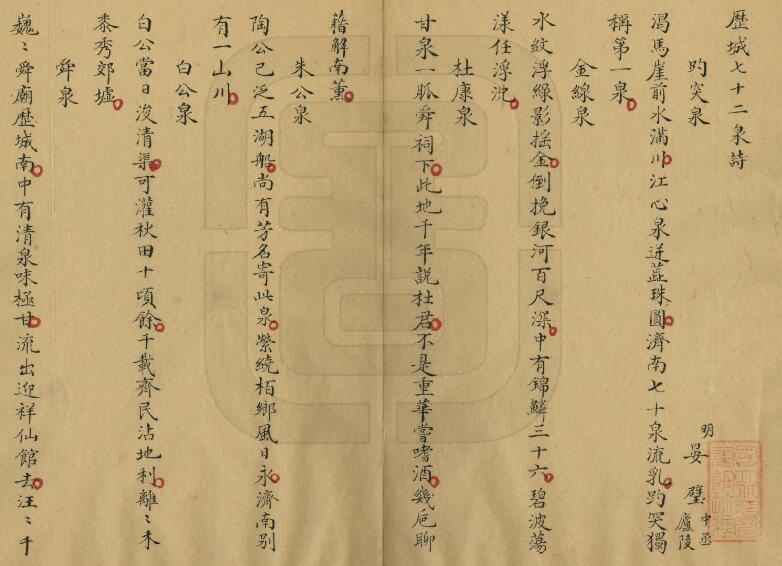 歷城七十二泉詩
明 晏璧 中丞 廬陵
趵突泉
渴馬崖前水滿川江心泉迸蕋珠圓濟南七十泉流乳趵突獨
稱第一泉
金線泉
水紋浮綠影搖金倒挽銀河百尺深中有錦鱗三十六碧波蕩
漾任浮沉
杜康泉
甘泉一脈舜祠下此地千年説杜君不是重華嘗嗜酒幾卮聊
藉解南薰
朱公泉
陶公已泛五湖船尚有芳名寄此泉縈繞栢鄉風日永濟南别
有一山川
白公泉
白公當日浚清渠可灌秋田十頃餘千載齊民沾地利離〻禾
黍秀郊墟
舜泉
巍〻舜廟歷城南中有清泉味極甘流出迎祥仙館去汪〻千